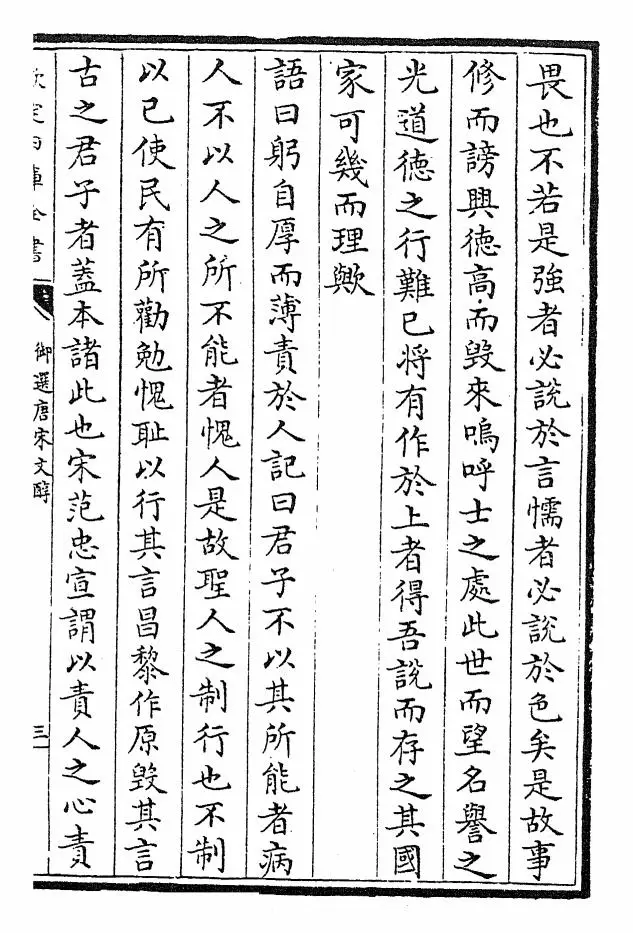 畏也不若是強者必説於言懦者必説於色矣是故事
修而謗興德高而毀來嗚呼士之處此世而望名譽之
光道德之行難已将有作於上者得吾説而存之其國
家可幾而理歟
語曰躬自厚而薄責於人記曰君子不以其所能者病
人不以人之所不能者愧人是故聖人之制行也不制
以己使民有所勸勉愧耻以行其言昌黎作原毀其言
古之君子者蓋本諸此也宋范忠宣謂以責人之心責
欽定四庫全書
御選唐宋文醇
三